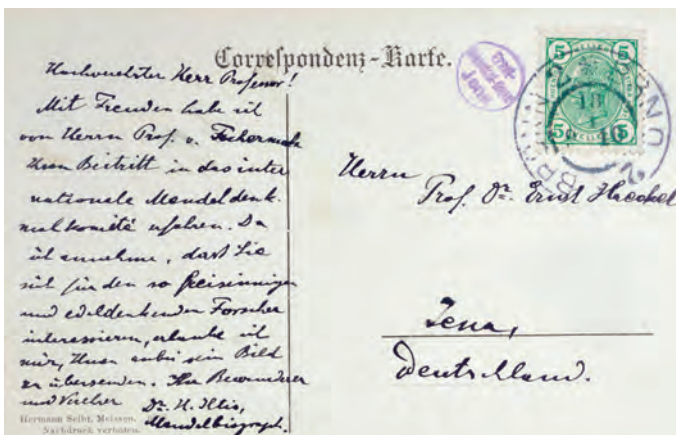 Correspondenz-Karte.
Hochverehrter Herr Professor!
Mit Freuden habe ich
von Herrn Prof. v. Tschermak
Ihren Beitritt in das inter
nationale Mendeldenk.
malkomité erfahren. Da
ich annehme, dass Sie
sich für den so freisinnigen
und edeldenkenden Forscher
interessieren, erlaube ich
mir, Ihnen anbei sein Bild
zu übersenden. Ihr Bewunderer
und Verehrer
Dr. H. Iltis,
Mendelbiograph.
Hermann Seibt, Meissen.
Nachdruck verboten.
5 5
5 5
BRÜNN 2 BRNO 2
18
10
Herrn
Prof. Dr. Ernst Haeckel
Jena,
Deutschland.